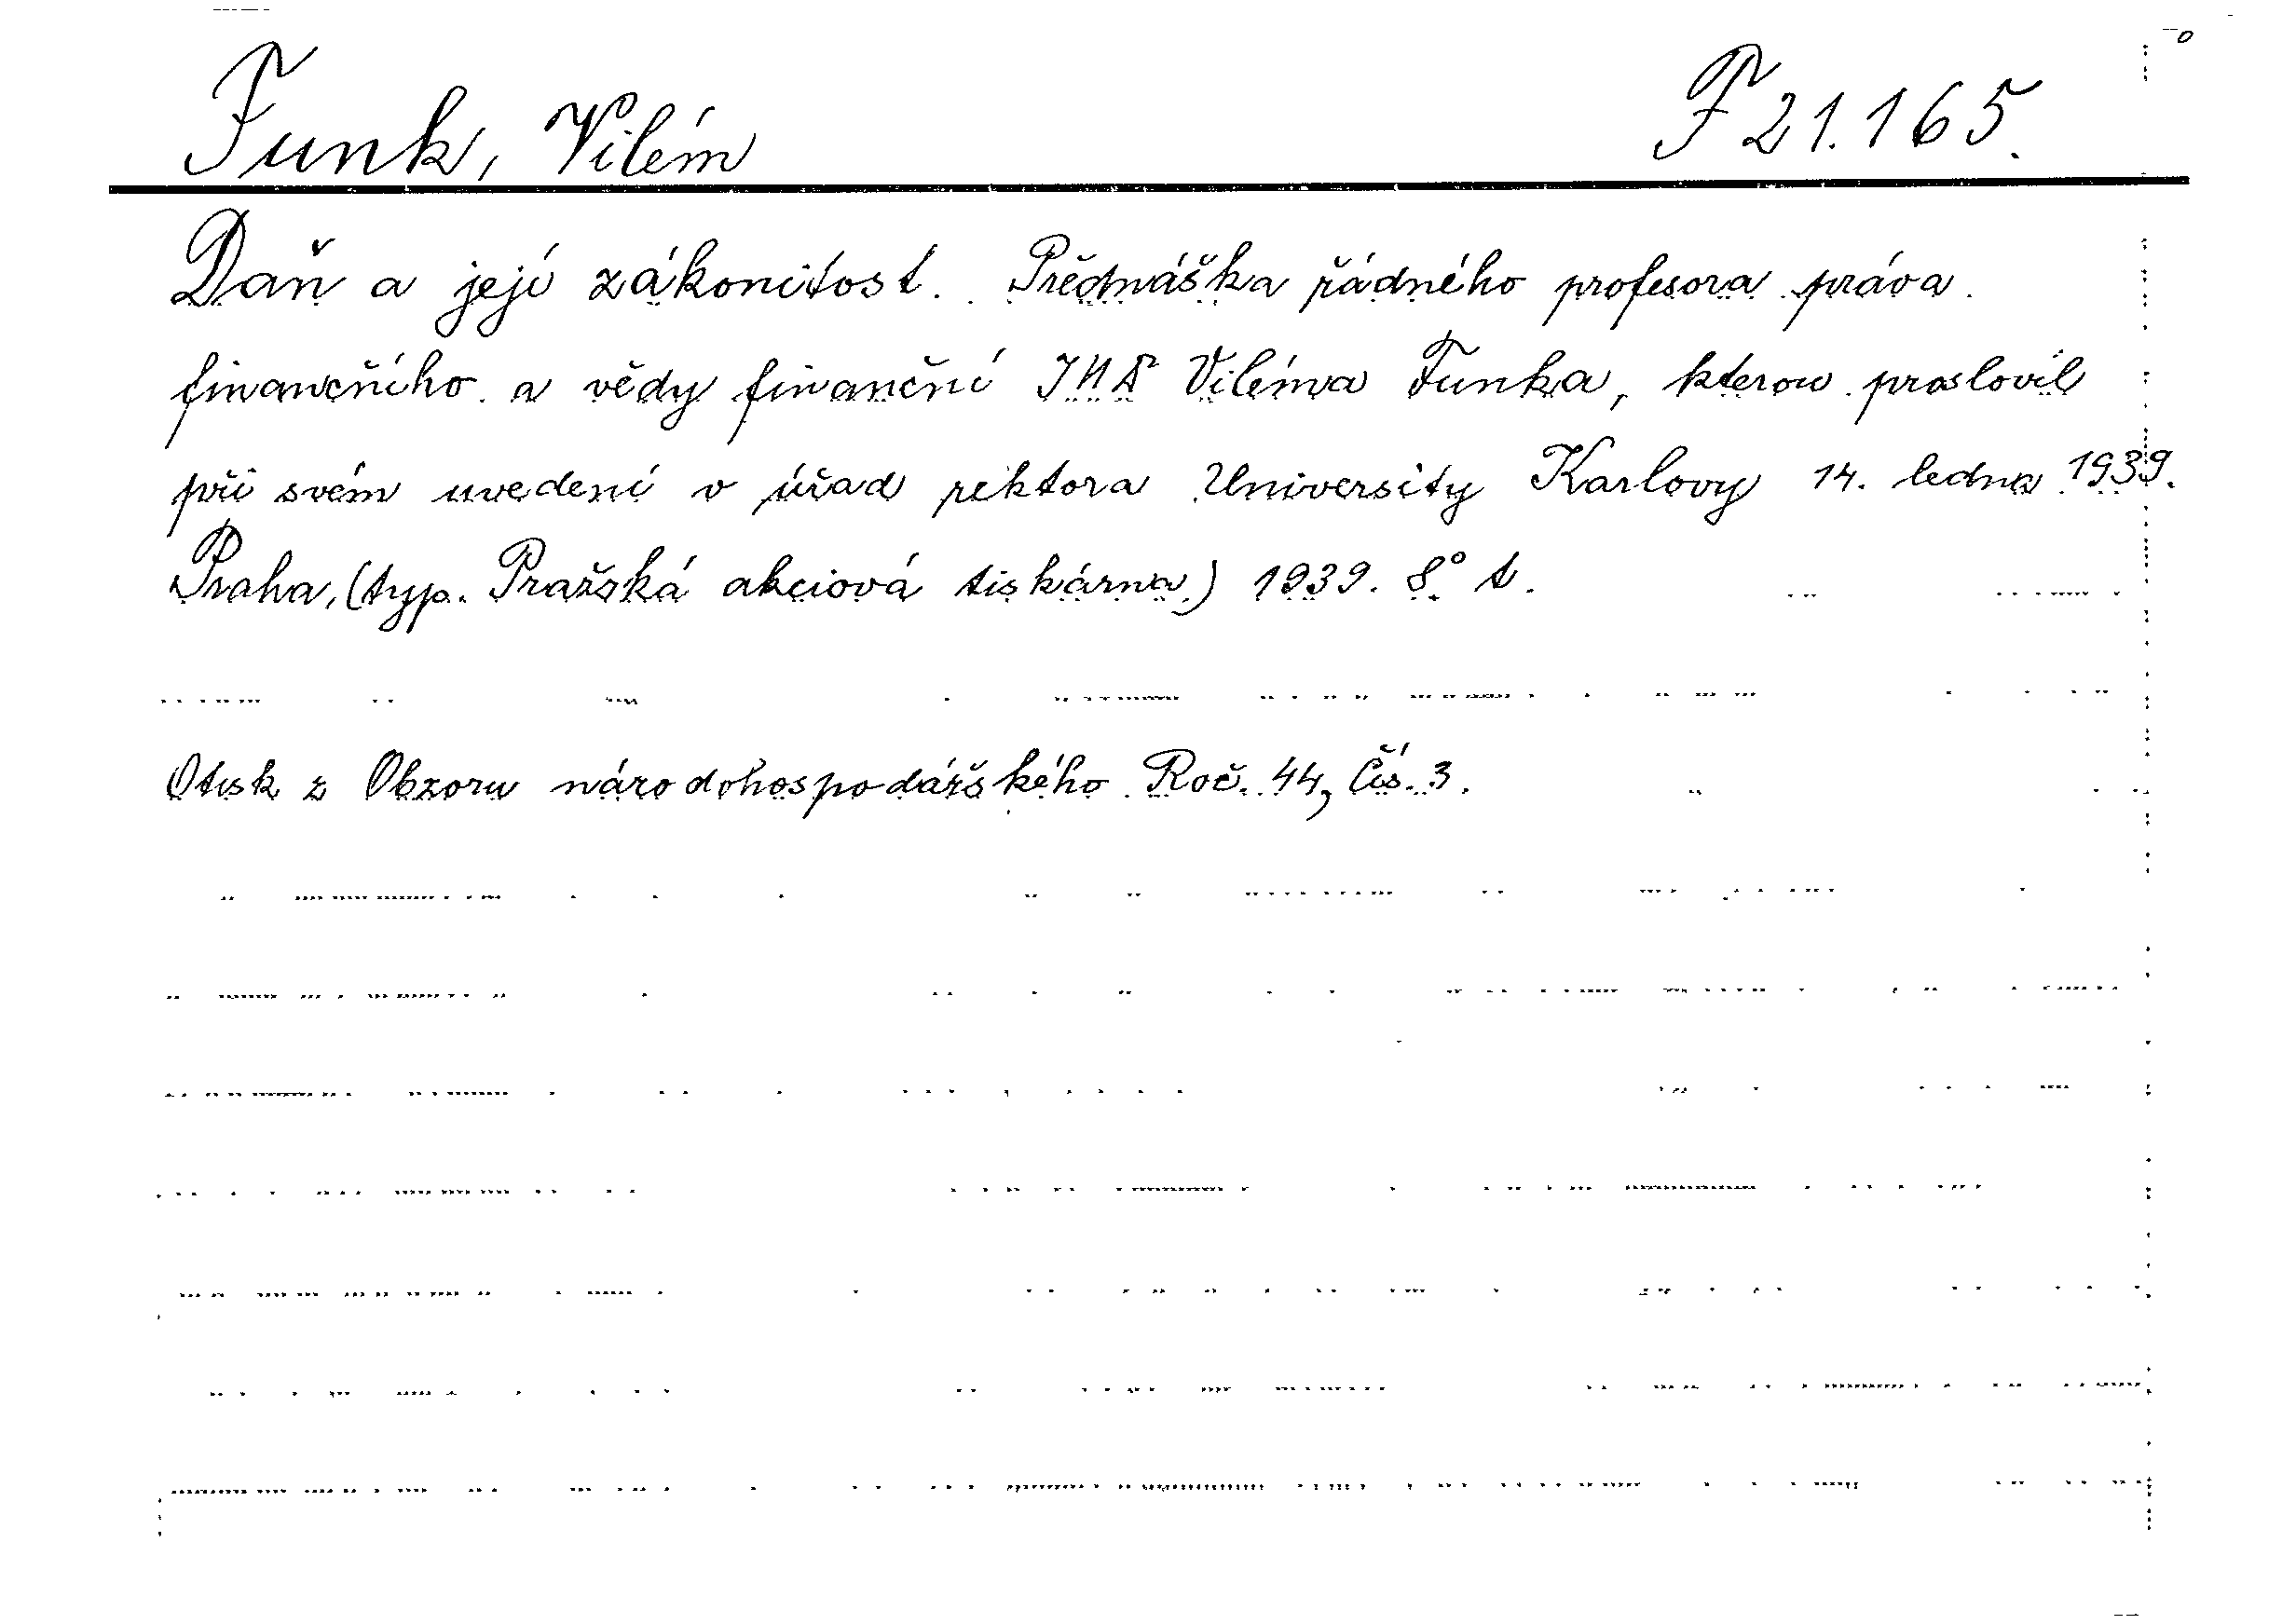 Funk, Vilém F 21.165.
Daň a její zákonitost. Přednáška řádného profesora práva
finančního a vědy finanční Viléma Funka, kterou proslovil
při svém uvedení v úřad rektora University Karlovy 14. ledna 1939.
Praha, (typ. Pražská akciová tiskárna) 1939. 8° t.
Otisk z Obzoru národohospodářského Roč. 44, Čís. 3.